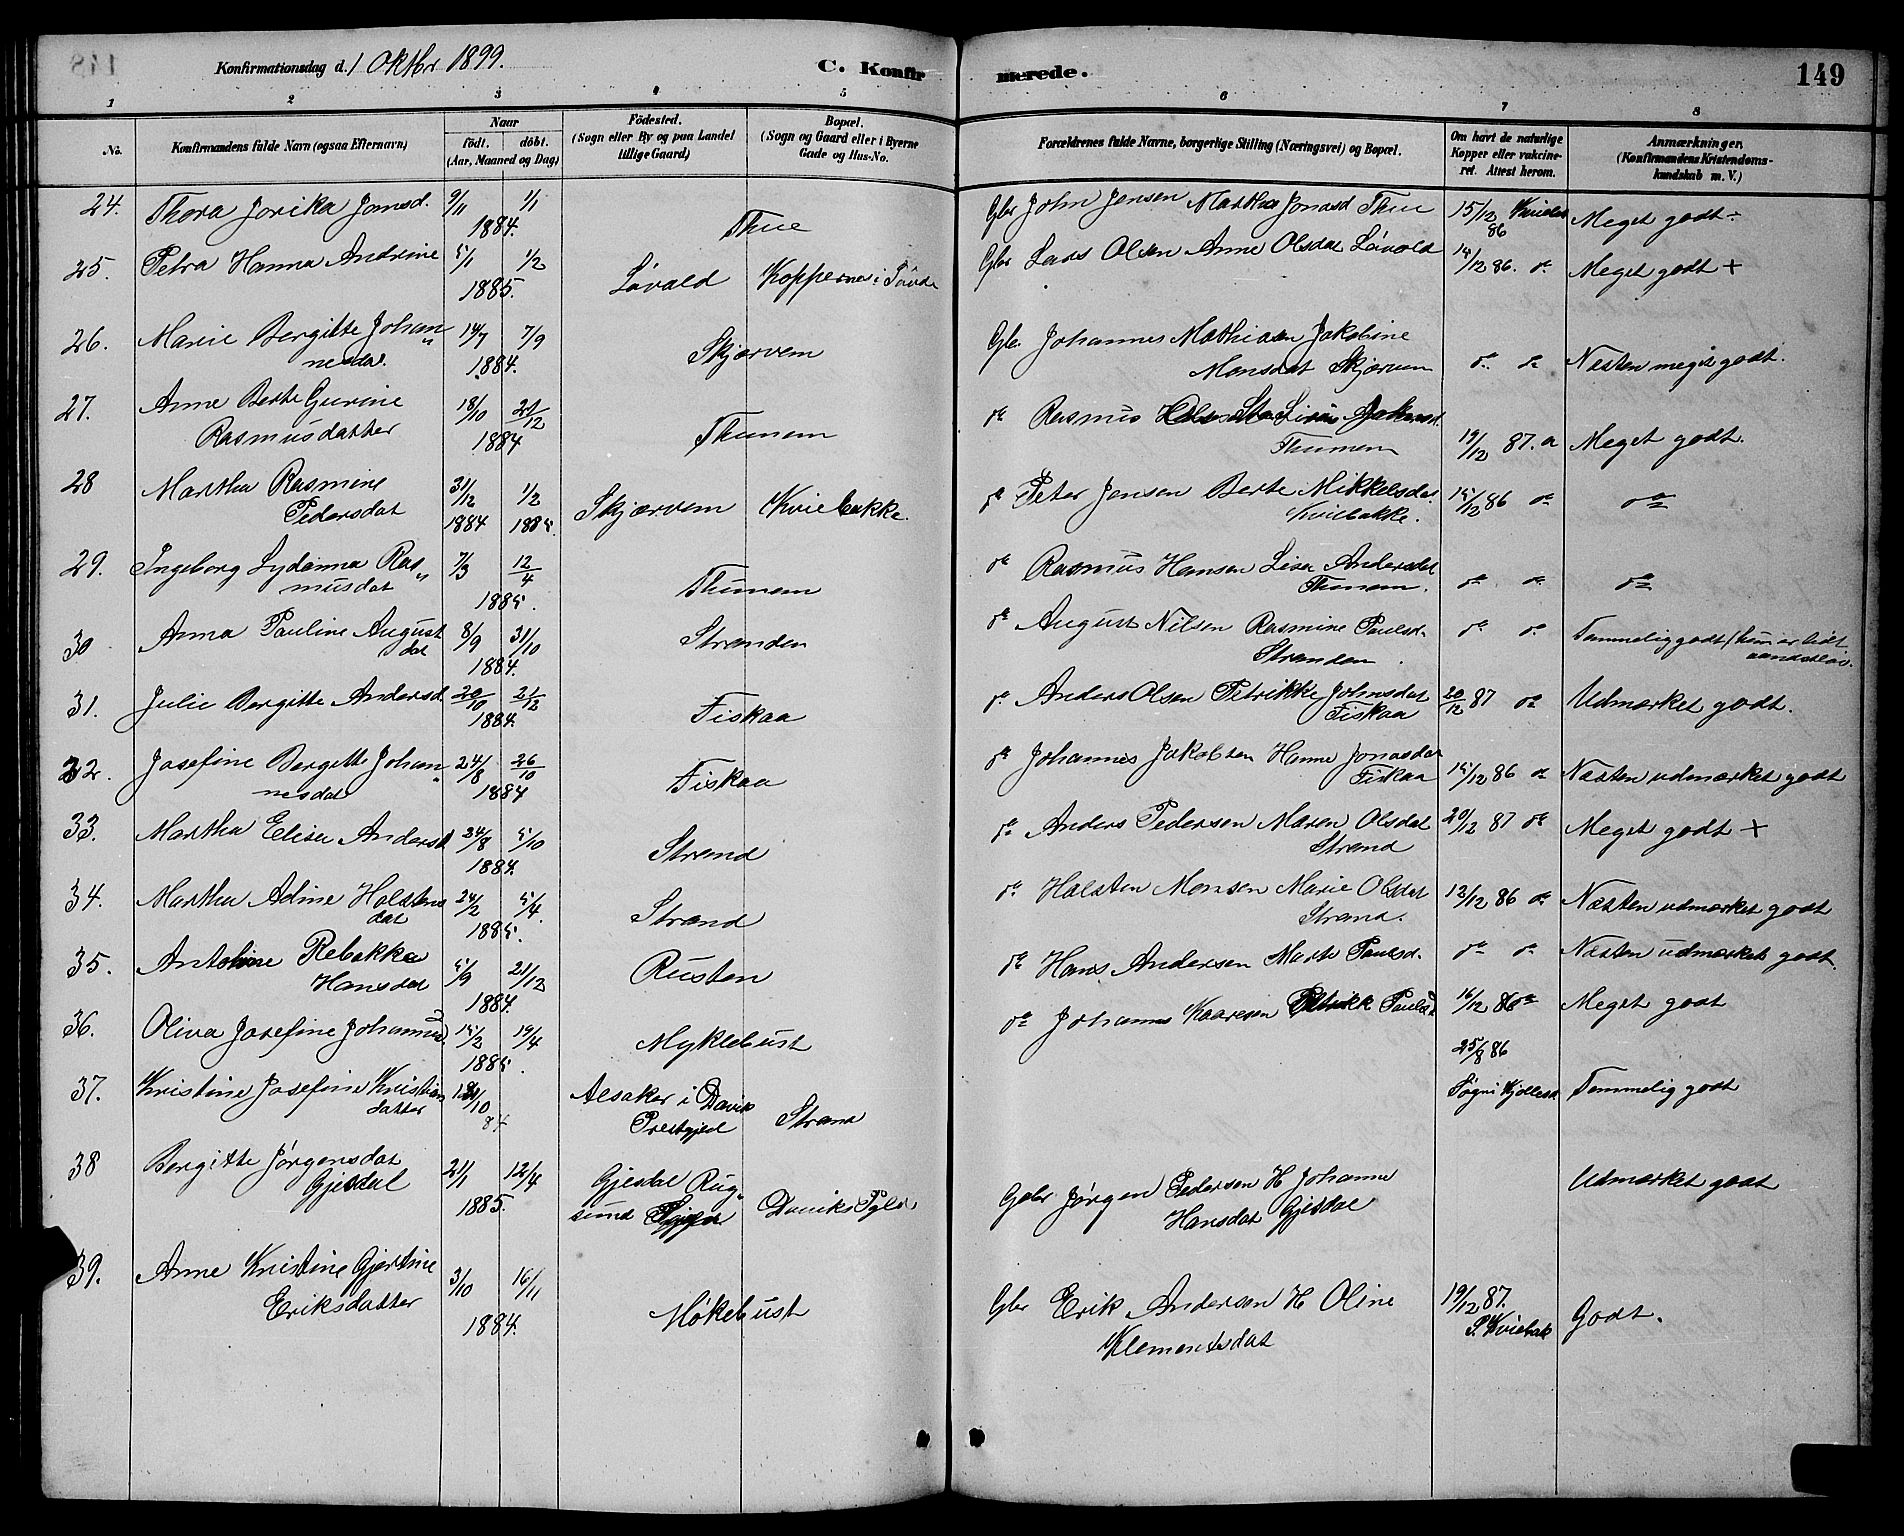 Konfirmationsdag d. 1 Oktbr 1899.
C. Konfir
merede.
149
1 2 3 4 5 6 7 8
No.
Konfirmandens fulde Navn (ogsaa Efternavn)
Naar
födt. döbt.
(Aar, Maaned og Dag)
Födested.
(Sogn eller By og paa Landet
tillige Gaard)
Bopæl.
(Sogn og Gaard eller i Byerne
Gade og Hus-No.
Forældrenes fulde Navne, borgerlige Stilling (Næringsvei) og Bopæl.
Om havt de naturlige
Kopper eller vakcine-
ret. Attest herom.
Anmærkninger.
(Konfirmandens Kristendoms-
kundskab m. V.)
24. Thora Jorika Jonsd. 9/11 1/1 Gbr John Jensen Martha Jonasd Thue 15/12 86 Meget godt ÷
1884. Thue
25. Petra Hanna Andrine 5/1 1/2 Gbr Lars Olsen Anne Olsdat Lövold 14/12 86. do Meget godt +
1885. Lövold Koppernes i
26. Marie Bergitte Johan„ 14/7 7/9 Gbr. Johannes Mathiasen Jakobine
nesdat. 1884. Skjærvem Monsdat Skjærven do do Næsten meget godt.
27. Anne Berte Gurine 18/10 21/12 do Rasmus
Rasmusdatter 1884 Thunem Thunem 19/12 87. Meget godt.
28 Martha Rasmine 31/12 1/2 do Peter Jensen Berte Mikkelsdat 15/12 86 do do
Pedersdat 1884 1885. Skjærvem Kviebakke. Kviebakke.
29. Ingeborg Lydianna Ras„ 7/3 12/4 do Rasmus Hansen Lisa Andersdat
musdat 1885. Thunem Thunem. do do do
30 Anna Pauline August 8/9 31/10 do August Nilsen Rasmine Paulsd. do do Temmelig godt (hun er lidt
dat 1884. Stranden Stranden. aandslöv.
31. Julie Bergitte Andersd. 20/10 21/12 do Anders Olsen Petrikke Johnsdat 20/12 87 do Udmærket godt.
1884. Fiskaa Fiskaa
32. Josefine Bergitte Johan„ 24/8 26/10 do Johannes Jakobsen Hanne Jonasdat
nesdat 1884 Fiskaa Fiskaa 15/12 86 do Næsten udmærket godt
33. Martha Elisa Andersd 24/8 5/10 do Anders Pedersen Maren Olsdat 20/12 87 do Meget godt +
1884. Strand Strand
34. Martha Adine Holstens 24/2 5/4. do Holsten Monsen Marie Olsdat 12/12 86 do Næsten udmærket godt
dat 1885. Strand Strand.
35. Antoline Rebekka 5/9 21/12 do Hans Andersen Marte Paulsd. do do Næsten udmærket godt.
Hansdat 1884. Rusten
36. Oliva Josefine Johannesd. 15/2 19/4 do Johannes Kaaresen Petrikke Paulsd 16/12 86 do Meget godt
1885. Myklebust
25/8 86
37. Kristine Josefine Kristian /10 Aesaker i Davik Kjöllesd Temmelig godt
datter 84 Prestgjeld Strand
38 Bergitte Jörgensdat 21/1 12/4 Gjesdal Rug„ Gbr Jörgen Pedersen H Johanne Udmærket godt
Gjesdal 1885. sund Daviks Pgld. Hansdat Gjesdal
39. Anne Kristine Gjertine 3/10 16/11 Gbr Erik Andersen H Oline 19/12 87. Godt.
Eriksdatter 1884. Mökebust Klementsdat P. Kviebak